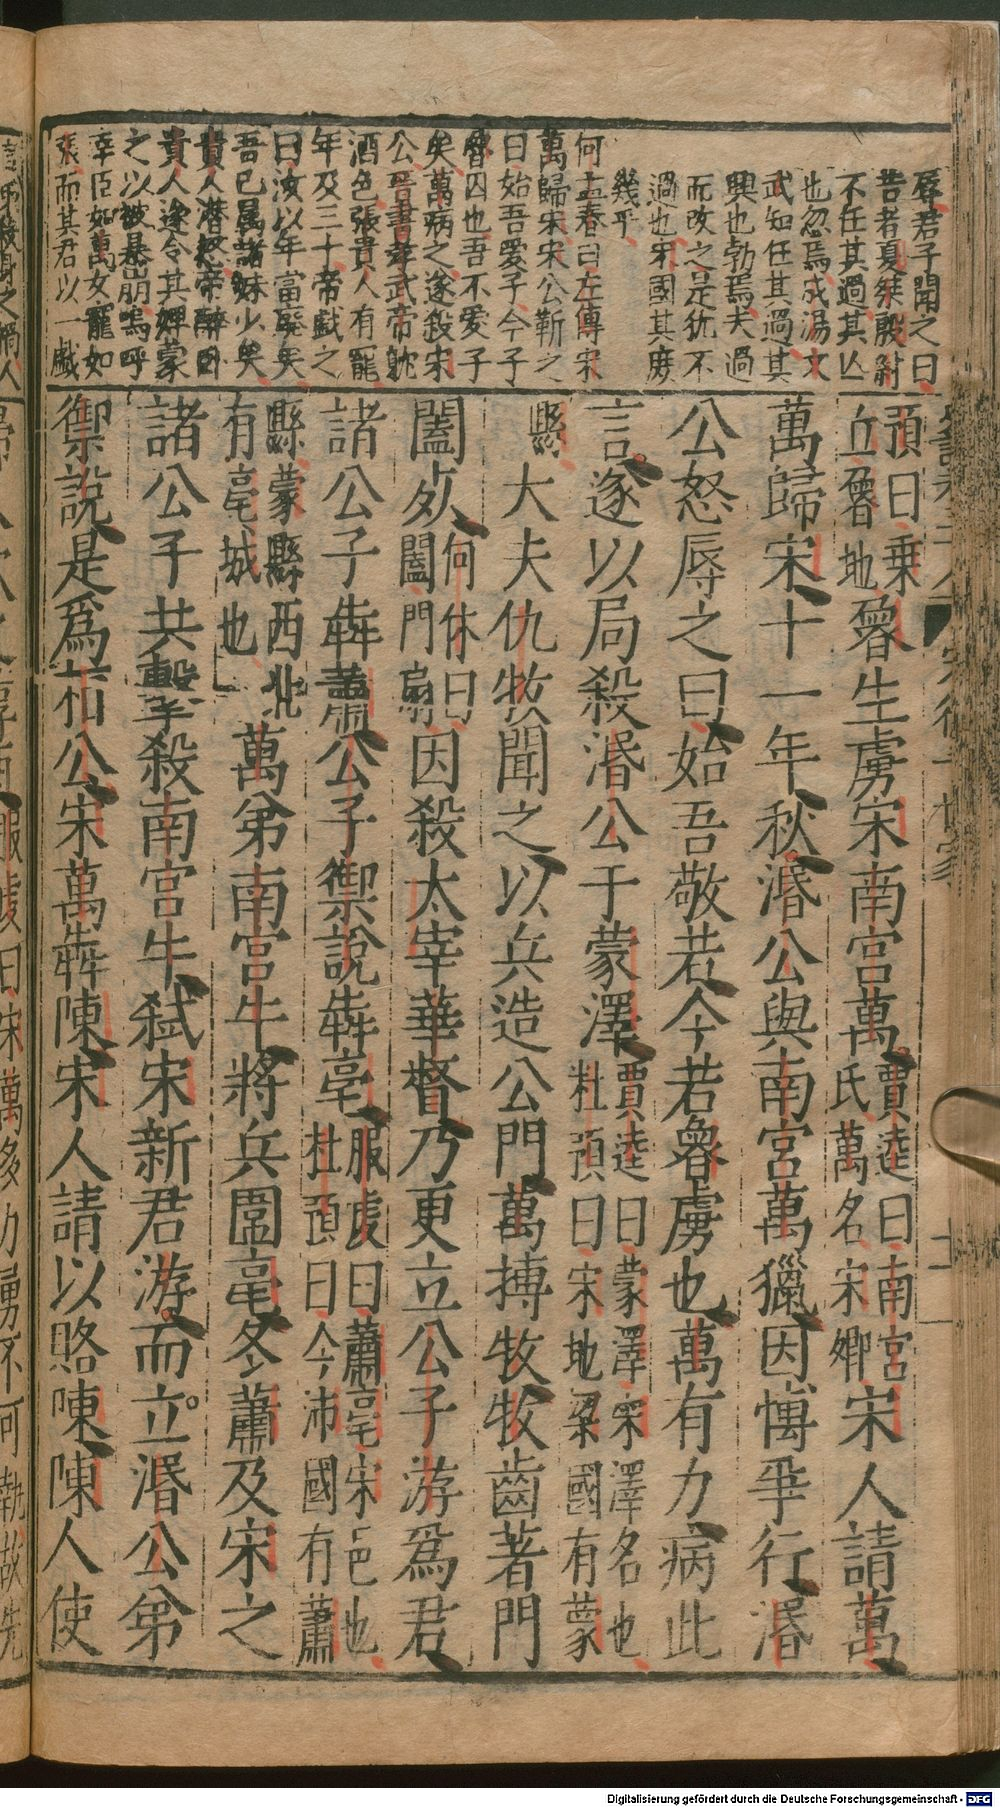 辱君子聞之曰
昔者夏桀殷紂
不任其過其亾
也忽焉成湯文
武知任其過其
興也勃焉夫過
而改之是犹不
過也宋國其庶
幾乎
何孟春曰左傳宋
萬歸宋宋公靳之
曰始吾愛子今子
魯囚也吾不愛子
矣萬病之遂殺宋
公晉書孝武帝躭
酒色張貴人有寵
年及三十帝戲之
曰汝以年當廢矣
吾已屬諸妹少矣
貴人潜怒帝醉卧
貴人遂令其婢蒙
之以被暴崩嗚呼
幸臣如萬女寵如
張而其君以一戲
預曰乗
丘魯地
魯生虜宋南宫萬
賈逵曰南宫
氏萬名宋卿
宋人請萬
萬歸宋十一年秋湣公與南宫萬獵因博爭行湣
公怒辱之曰始吾敬若今若魯虜也萬有力病此
言遂以局殺湣公于蒙澤
賈逵曰蒙澤宋澤名也
杜預曰宋地梁國有蒙
縣
大夫仇牧聞之以兵造公門萬搏牧牧齒著門
闔死
何休曰
闔門扇
因殺太宰華督乃更立公子游爲君
諸公子犇蕭公子禦說犇亳
服虔曰蕭亳宋邑也
杜預曰今沛國有蕭
縣蒙縣西北
有亳城也
萬弟南宫牛將兵圍亳冬蕭及宋之
諸公子共擊殺南宫牛弒宋新君游而立湣公弟
禦說是爲桓公宋萬犇陳宋人請以賂陳陳人使
服虔曰宋萬多力勇不可執故先
Digitalisierung gefördert durch die Deutsche Forschungsgemeinschaft - DFG